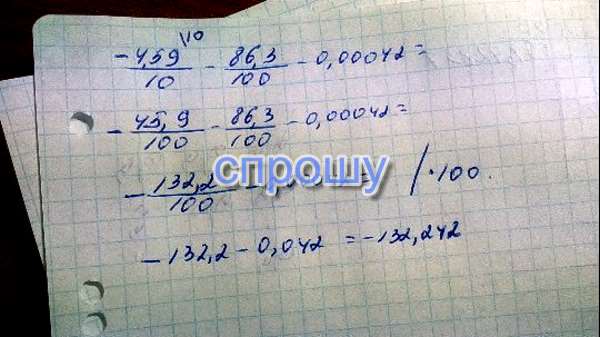 \10
-4,59/10 - 86,3/100 - 0,00042 =
- 45,9/100 - 86,3/100 - 0,00042 =
- 132,2/100 /·100.
спрошу
- 132,2 - 0,042 = -132,242